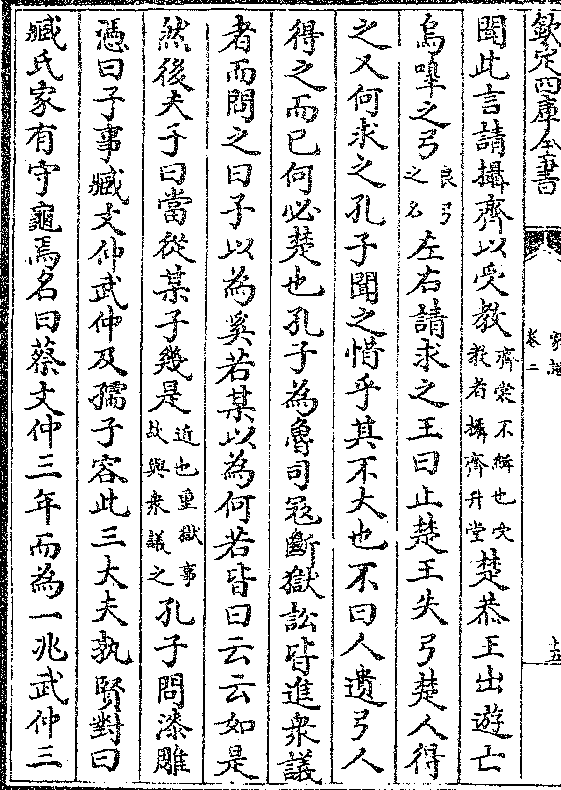 欽定四庫全書
家語
卷二
十五
聞此言請攝齊以受教齊裳不緝也受教者攝齊升堂楚恭王出遊亡
烏嘷之弓良弓之名左右請求之王曰止楚王失弓楚人得
之又何求之孔子聞之惜乎其不大也不曰人遺弓人
得之而已何必楚也孔子為魯司冦斷獄訟皆進衆議
者而問之曰子以為奚若某以為何若皆曰云云如是
然後夫子曰當從某子幾是近也重獄事故與衆議之孔子問漆雕
憑曰子事臧文仲武仲及孺子容此三大夫孰賢對曰
臧氏家有守龜焉名曰蔡文仲三年而為一兆武仲三